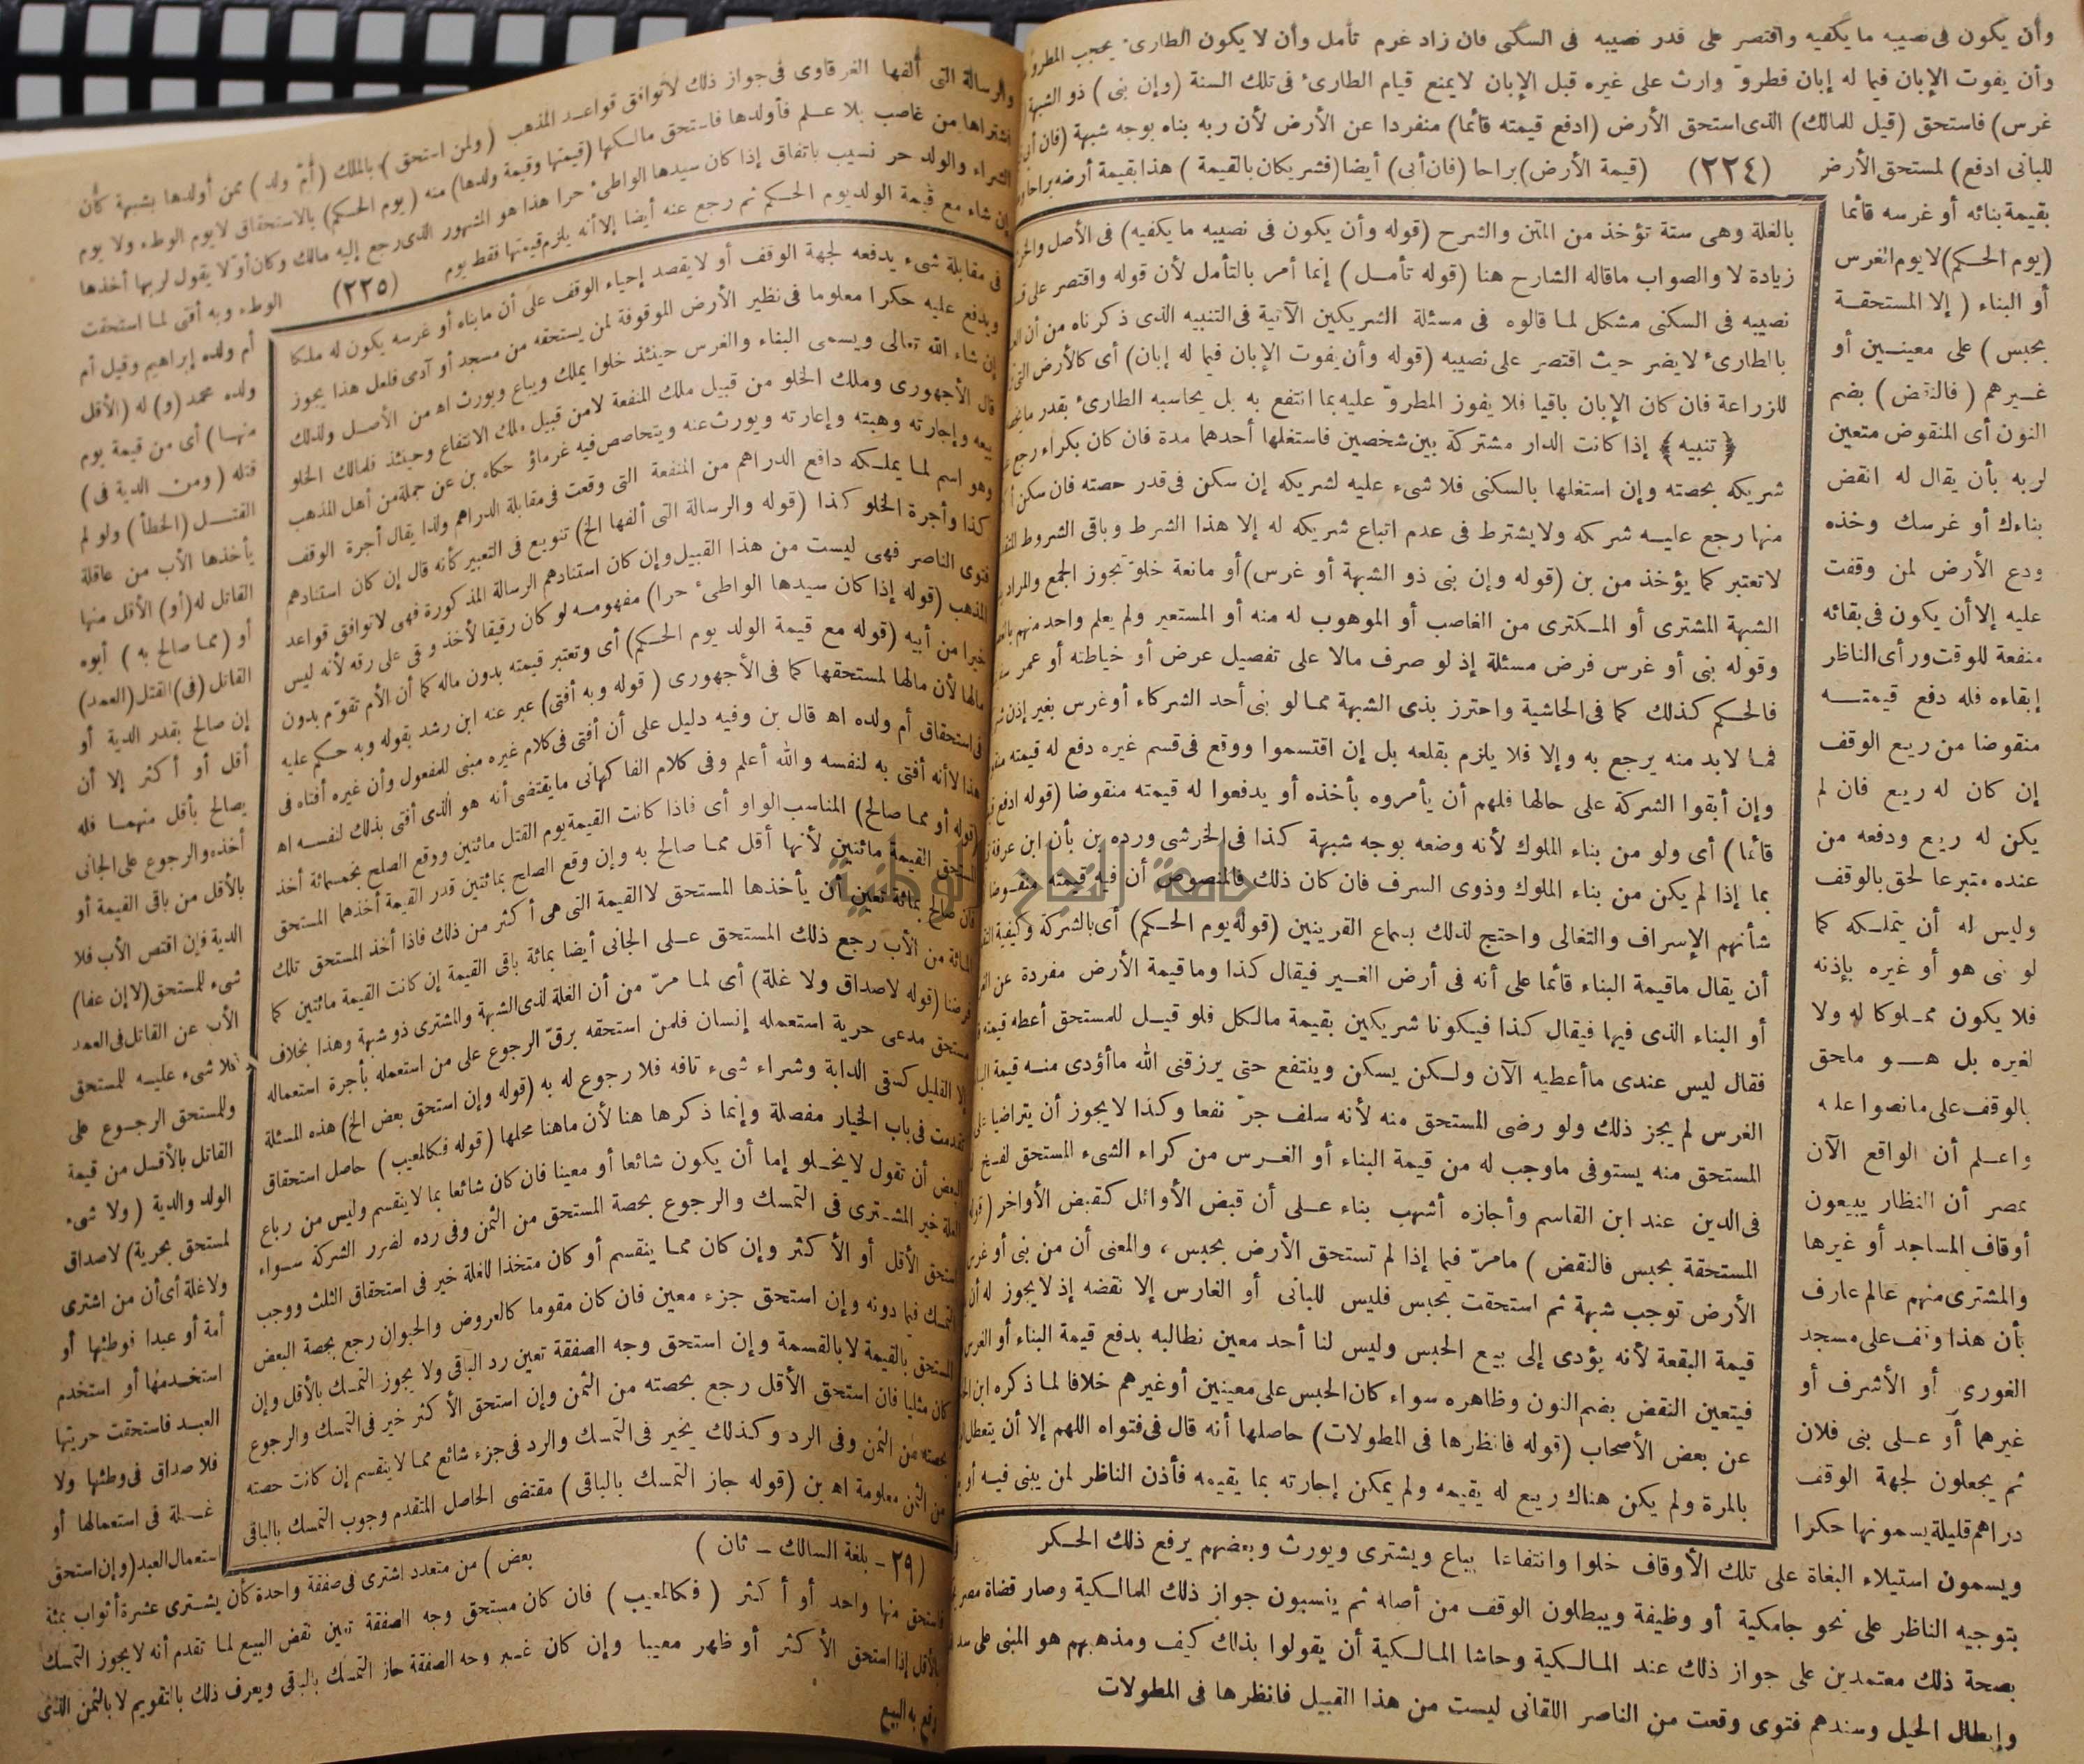 وأن يكون فى نصيبه ما يكفيه واقتصر على قدر نصيبه فى السكنى فان زاد غرم تأمل وأن لا يكون الطارئ يحجب المطروّ
وأن يفوت الإبان فيما له إبان فطروّ وارث على غيره قبل الإبان لايمنع قيام الطارئ فى تلك السنة (وإن بنى) ذو الشبهة
غرس) فاستحق (قيل للمالك) الذى استحق الأرض (ادفع قيمته قائما) منفردا عن الأرض لأن ربه بناه بوجه شبهة (فان أبى
للبانى ادفع) لمستحق الأرض (٢٢٤) (قيمة الأرض) براحا (فان أبى) أيضا (فشريكان بالقيمة) هذا بقيمة أرضه براحا
بقيمة بنائه أو غرسه قائما
(يوم الحكم) لا يوم الغرس
أو البناء (إلا المستحقة
بحبس) على معينين أو
غيرهم (فالنقض) بضم
النون أى المنقوض متعين
لربه بأن يقال له انقض
بناءك أو غرسك وخذه
ودع الأرض لمن وقفت
عليه إلا أن يكون فى بقائه
منفعة للوقف ورأى الناظر
إبقاءه فله دفع قيمته
منقوضا من ريع الوقف
إن كان له ريع فان لم
يكن له ريع ودفعه من
عنده متبرعا لحق بالوقف
وليس له أن يتملكه كما
لو بنى هو أو غيره بإذنه
فلا يكون مملوكا له ولا
لغيره بل هو ملحق
بالوقف على ما نصوا عليه
واعلم أن الواقع الآن
بمصر أن النظار يبيعون
أوقاف المساجد أو غيرها
والمشترى منهم عالم عارف
بأن هذا وقف على مسجد
الغورى أو الأشرف أو
غيرهما أو على بنى فلان
ثم يجعلون لجهة الوقف
دراهم قليلة يسمونها حكرا
بالغلة وهى ستة تؤخذ من المتن والشرح (قوله وأن يكون فى نصيبه ما يكفيه) فى الأصل
زيادة لا والصواب ماقاله الشارح هنا (قوله تأمل) إنما أمر بالتأمل لأن قوله واقتصر على
نصيبه فى السكنى مشكل لما قالوه فى مسئلة الشريكين الآتية فى التنبيه الذى ذكرناه من أن
بالطارئ لا يضر حيث اقتصر على نصيبه (قوله وأن يفوت الإبان فيما له إبان) أى كالأرض التى
للزراعة فان كان الإبان باقيا فلا يفوز المطروّ عليه بما انتفع به بل يحاسبه الطارئ بقدر
﴿تنبيه﴾ إذا كانت الدار مشتركة بين شخصين فاستغلها أحدهما مدة فان كان بكراء رجع
شريكه بحصته وإن استغلها بالسكنى فلا شىء عليه لشريكه إن سكن فى قدر حصته فان سكن
منها رجع عليه شركه ولا يشترط فى عدم اتباع شريكه له إلا هذا الشرط وباقى الشروط
لاتعتبر كما يؤخذ من بن (قوله وإن بنى ذو الشبهة أو غرس) أو مانعة خلوّ تجوز الجمع والمراد
الشبهة المشترى أو المكترى من الغاصب أو الموهوب له منه أو المستعير ولم يعلم واحد منهم
وقوله بنى أو غرس فرض مسئلة إذ لو صرف مالا على تفصيل عرض أو خياطته أو عمر
فالحكم كذلك كما فى الحاشية واحترز بذى الشبهة مما لو بنى أحد الشركاء أو غرس بغير إذن
فما لابد منه يرجع به وإلا فلا يلزم بقلعه بل إن اقتسموا ووقع فى قسم غيره دفع له قيمته
وإن أبقوا الشركة على حالها فلهم أن يأمروه بأخذه أو يدفعوا له قيمته منقوضا (قوله ادفع
قائما) أى ولو من بناء الملوك لأنه وضعه بوجه شبهة كذا فى الخرشى ورده بن بأن ابن عرفة
بما إذا لم يكن من بناء الملوك وذوى السرف فان كان ذلك فالمنصوص أن فيه قيمته منقوضا
شأنهم الإسراف والتغالى واحتج لذلك بسماع القرينين (قوله يوم الحكم) أى بالشركة وكيفية
أن يقال ماقيمة البناء قائما على أنه فى أرض الغير فيقال كذا وماقيمة الأرض مفردة عن
أو البناء الذى فيها فيقال كذا فيكونا شريكين بقيمة مالكل فلو قيل للمستحق أعطه قيمته
فقال ليس عندى ماأعطيه الآن ولكن يسكن وينتفع حتى يرزقنى الله ماأؤدى منه قيمة
الغرس لم يجز ذلك ولو رضى المستحق منه لأنه سلف جرّ نفعا وكذا لا يجوز أن يتراضيا على
المستحق منه يستوفى ماوجب له من قيمة البناء أو الغرس من كراء الشىء المستحق لفسخ
فى الدين عند ابن القاسم وأجازه أشهب بناء على أن قبض الأوائل كقبض الأواخر
المستحقة بحبس فالنقض) مامرّ فيما إذا لم تستحق الأرض بحبس، والمعنى أن من بنى أو غرس
الأرض توجب شبهة ثم استحقت بحبس فليس للبانى أو الغارس إلا نقضه إذ لا يجوز له
قيمة البقعة لأنه يؤدى إلى بيع الحبس وليس لنا أحد معين نطالبه بدفع قيمة البناء أو الغرس
فيتعين النقض بضم النون وظاهره سواء كان الحبس على معينين أو غيرهم خلافا لما ذكره ابن
عن بعض الأصحاب (قوله فانظرها فى المطولات) حاصلها أنه قال فى فتواه اللهم إلا أن يتعطل
بالمرة ولم يكن هناك ريع له يقيمه ولم يمكن إجارته بما يقيمه فأذن الناظر لمن يبنى فيه
ويسمون استيلاء البغاة على تلك الأوقاف خلوا وانتفاعا يباع ويشترى ويورث وبعضهم يرفع ذلك الحكر
بتوجيه الناظر على نحو جامكية أو وظيفة ويبطلون الوقف من أصله ثم ينسبون جواز ذلك للمالكية وصار قضاة مصر
بصحة ذلك معتمدين على جواز ذلك عند المالكية وحاشا المالكية أن يقولوا بذلك كيف ومذهبهم هو المبنى على سد
وإبطال الحيل وسندهم فتوى وقعت من الناصر اللقانى ليست من هذا القبيل فانظرها فى المطولات
والرسالة التى ألفها الغرقاوى فى جواز ذلك لاتوافق قواعد المذهب (ولمن استحق) بالملك (أمّ ولد) ممن أولدها بشبهة كأن
اشتراها من غاصب بلا علم فأولدها فاستحق مالكها (قيمتها وقيمة ولدها) منه (يوم الحكم) بالاستحقاق لا يوم الوطء ولا يوم
الشراء والولد حر نسيب باتفاق إذا كان سيدها الواطئ حرا هذا هو المشهور الذى رجع إليه مالك وكان أوّلا يقول لربها أخذها
إن شاء مع قيمة الولد يوم الحكم ثم رجع عنه أيضا إلا أنه يلزم قيمتها فقط يوم (٢٢٥) الوطء وبه أفتى لما استحقت
أم ولده إبراهيم وقيل أم
ولده محمد (و) له (الأقل
منها) أى من قيمة يوم
قتله (ومن الدية فى)
القتل (الخطأ) ولو لم
يأخذها الأب من عاقلة
القاتل له (أو) الأقل منها
أو (مما صالح به) أبوه
القاتل (فى) القتل (العمد)
إن صالح بقدر الدية أو
أقل أو أكثر إلا أن
يصالح بأقل منهما فله
أخذه والرجوع على الجانى
بالأقل من باقى القيمة أو
الدية فإن اقتص الأب فلا
شىء للمستحق (لا إن عفا)
الأب عن القاتل فى العمد
فلا شىء عليه للمستحق
وللمستحق الرجوع على
القاتل بالأقل من قيمة
الولد والدية (ولا شىء
لمستحق بحرية) لا صداق
ولا غلة أى أن من اشترى
أمة أو عبدا فوطئها أو
استخدمها أو استخدم
العبد فاستحقت حريتها
فلا صداق فى وطئها ولا
غلة فى استعمالها أو
استعمال العبد (وإن استحق
فى مقابلة شىء يدفعه لجهة الوقف أو لا يقصد إحياء الوقف على أن مابناه أو غرسه يكون له ملكا
ويدفع عليه حكرا معلوما فى نظير الأرض الموقوفة لمن يستحقه من مسجد أو آدمى فلعل هذا يجوز
إن شاء الله تعالى ويسمى البناء والغرس حينئذ خلوا يملك ويباع ويورث اه من الأصل ولذلك
قال الأجهورى وملك الخلو من قبيل ملك المنفعة لا من قبيل ملك الانتفاع وحينئذ فلمالك الخلو
بيعه وإجارته وهبته وإعارته ويورث عنه ويتحاصص فيه غرماؤه حكاه بن عن جملة من أهل المذهب
وهو اسم لما يملكه دافع الدراهم من المنفعة التى وقعت فى مقابلة الدراهم ولذا يقال أجرة الوقف
كذا وأجرة الخلو كذا (قوله والرسالة التى ألفها الخ) تنويع فى التعبير كأنه قال إن كان استنادهم
فتوى الناصر فهى ليست من هذا القبيل وإن كان استنادهم الرسالة المذكورة فهى لاتوافق قواعد
المذهب (قوله إذا كان سيدها الواطئ حرا) مفهومه لو كان رقيقا لأخذ وقى على رقه لأنه ليس
خيرا من أبيه (قوله مع قيمة الولد يوم الحكم) أى وتعتبر قيمته بدون ماله كما أن الأم تقوّم بدون
مالها لأن مالها لمستحقها كما فى الأجهورى (قوله وبه أفتى) عبر عنه ابن رشد بقوله وبه حكم عليه
فى استحقاق أم ولده اه قال بن وفيه دليل على أن أفتى فى كلام غيره مبنى للمفعول وأن غيره أفتاه فى
هذا لا أنه أفتى به لنفسه والله أعلم وفى كلام الفاكهانى مايقتضى أنه هو الذى أفتى بذلك لنفسه اه
(قوله أو مما صالح) المناسب الواو أى فاذا كانت القيمة يوم القتل مائتين ووقع الصلح بخمسمائة أخذ
المستحق القيمة مائتين لأنها أقل مما صالح به وإن وقع الصلح بمائتين قدر القيمة أخذهما المستحق
فان صالح بمائة تعين أن يأخذها المستحق لا القيمة التى هى أكثر من ذلك فاذا أخذ المستحق تلك
المائة من الأب رجع ذلك المستحق على الجانى أيضا بمائة باقى القيمة إن كانت القيمة مائتين كما
فرضنا (قوله لا صداق ولا غلة) أى لما مرّ من أن الغلة لذى الشبهة والمشترى ذو شبهة وهذا بخلاف
مستحق مدعى حرية استعمله إنسان فلمن استحقه برقّ الرجوع على من استعمله بأجرة استعماله
إلا القليل كسقى الدابة وشراء شىء تافه فلا رجوع له به (قوله وإن استحق بعض الخ) هذه المسئلة
تقدمت فى باب الخيار مفصلة وإنما ذكرها هنا لأن ماهنا محلها (قوله فكالمعيب) حاصل استحقاق
البعض أن تقول لا يخلو إما أن يكون شائعا أو معينا فان كان شائعا بما لا ينقسم وليس من رباع
الغلة خير المشترى فى التمسك والرجوع بحصة المستحق من الثمن وفى رده لضرر الشركة سواء
استحق الأقل أو الأكثر وإن كان مما ينقسم أو كان متخذا للغلة خير فى استحقاق الثلث ووجب
التمسك فيما دونه وإن استحق جزء معين فان كان مقوما كالعروض والحيوان رجع بحصة البعض
المستحق بالقيمة لا بالقسمة وإن استحق وجه الصفقة تعين رد الباقى ولا يجوز التمسك بالأقل وإن
كان مثليا فان استحق الأقل رجع بحصته من الثمن وإن استحق الأكثر خير فى التمسك والرجوع
بحصته من الثمن وفى الرد وكذلك يخير فى التمسك والرد فى جزء شائع مما لا ينقسم إن كانت حصته
من الثمن معلومة اه بن (قوله جاز التمسك بالباقى) مقتضى الحاصل المتقدم وجوب التمسك بالباقى
(٢٩ - بلغة السالك - ثان)
بعض) من متعدد اشترى فى صفقة واحدة كأن يشترى عشرة أثواب بمئة
فاستحق منها واحد أو أكثر (فكالمعيب) فان كان مستحق وجه الصفقة تعين نقض البيع لما تقدم أنه لا يجوز التمسك
بالأقل إذا استحق الأكثر أو ظهر معيبا وإن كان غير وجه الصفقة جاز التمسك بالباقى ويعرف ذلك بالتقويم لا بالثمن الذى
وقع به البيع
جامعة النجاح الوطنية